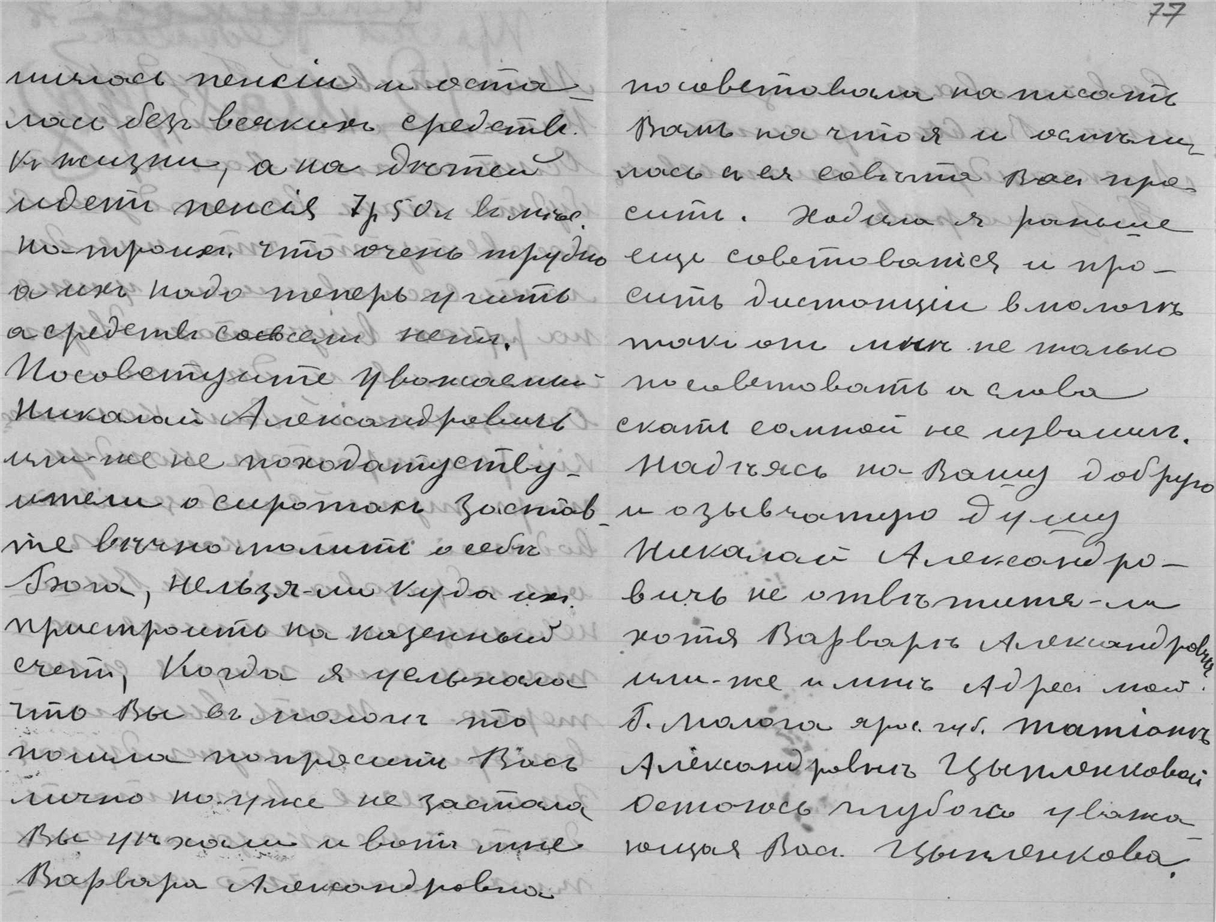 77
милась пенсiи и оста-
лась безъ всякихъ средствъ
къ жизни, а на дѣтей
идетъ пенсiя 7р 50к в мѣс
на троихъ. что очень трудно
а ихъ надо теперь учить
а средствъ совсем нетъ.
Посоветуйте уважаемый
Николай Александровичъ
или-же не походатуству-
ители о сиротахъ застав-
те вѣчно молить о себѣ
Бога, нельзя-ли куда ихъ
пристроить на казенный
счетъ, Когда я услыхала
что Вы въ мологѣ то
пошла попросить Васъ
лично но уже не застала
Вы уѣхали и вотъ мне
Варвара Александровна
посоветовали написать
Вамъ на что я и осмѣли-
лась съ ея совѣта Васъ про-
сить. Ходила я раньше
еще советоватся и про-
сить дистанцiи в мологѣ
такъ они мнѣ не только
посоветовать а слова
скать сомной не изволил.
Надѣясь на Вашу добрую
и озывчатую душу
Николай Александро-
вичь не отвѣтите-ли
хотя Варварѣ Александровнѣ
или-же и мнѣ Адресъ мой.
Г. Молога яросл. губ. Татiанѣ
Александровнѣ Цыпленковой
Остаюсь глубоко уважа-
ющая Васъ. Цыпленкова.